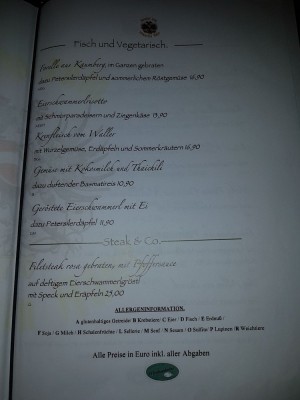 Fisch und Vegetarisch.
Forelle aus Kaumberg im Ganzen gebraten
dazu Petersilerdäpfel und sommerlichem Röstgemüse 16,90
Eierschwammerlrisotto
mit Schmorparadeisern und Ziegenkäse 13,90
Krenfleisch vom Waller
mit Wurzelgemüse, Erdäpfeln und Sommerkräutern 16,90
Gemüse mit Kokosmilch und Thaichili
dazu duftender Basmatireis 10,90
Geröstete Eierschwammerl mit Ei
dazu Petersilerdäpfel 11,90
Steak & Co.
Filetsteak rosa gebraten, mit Pfeffersauce
auf deftigem Eierschwammerlgröstl
mit Speck und Eräpfeln 25,00
ALLERGENINFORMATION.
A glutenhaltiges Getreide/ B Krebstiere/ C Eier / D Fisch / E Erdnuß /
F Soja / G Milch / H Schalenfrüchte / L Sellerie / M Senf / N Sesam / O Sulfite/ P Lupinen /R Weichtiere
Alle Preise in Euro inkl. aller Abgaben